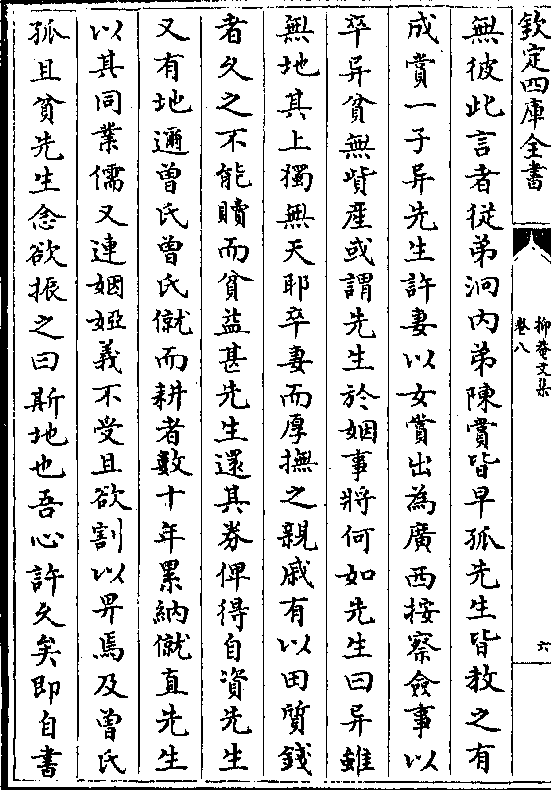 欽定四庫全書
抑菴文集
卷八
六
無彼此言者從弟泂内弟陳賞皆早孤先生皆教之有
成賞一子异先生許妻以女賞出為廣西按察僉事以
卒异貧無貲産或謂先生於姻事將何如先生曰异雖
無地其上獨無天耶卒妻而厚撫之親戚有以田質錢
者久之不能贖而貧益甚先生還其券俾得自資先生
又有地邇曾氏曾氏僦而耕者數十年累納僦直先生
以其同業儒又連姻婭義不受且欲割以畀焉及曾氏
孤且貧先生念欲振之曰斯地也吾心許久矣即自書